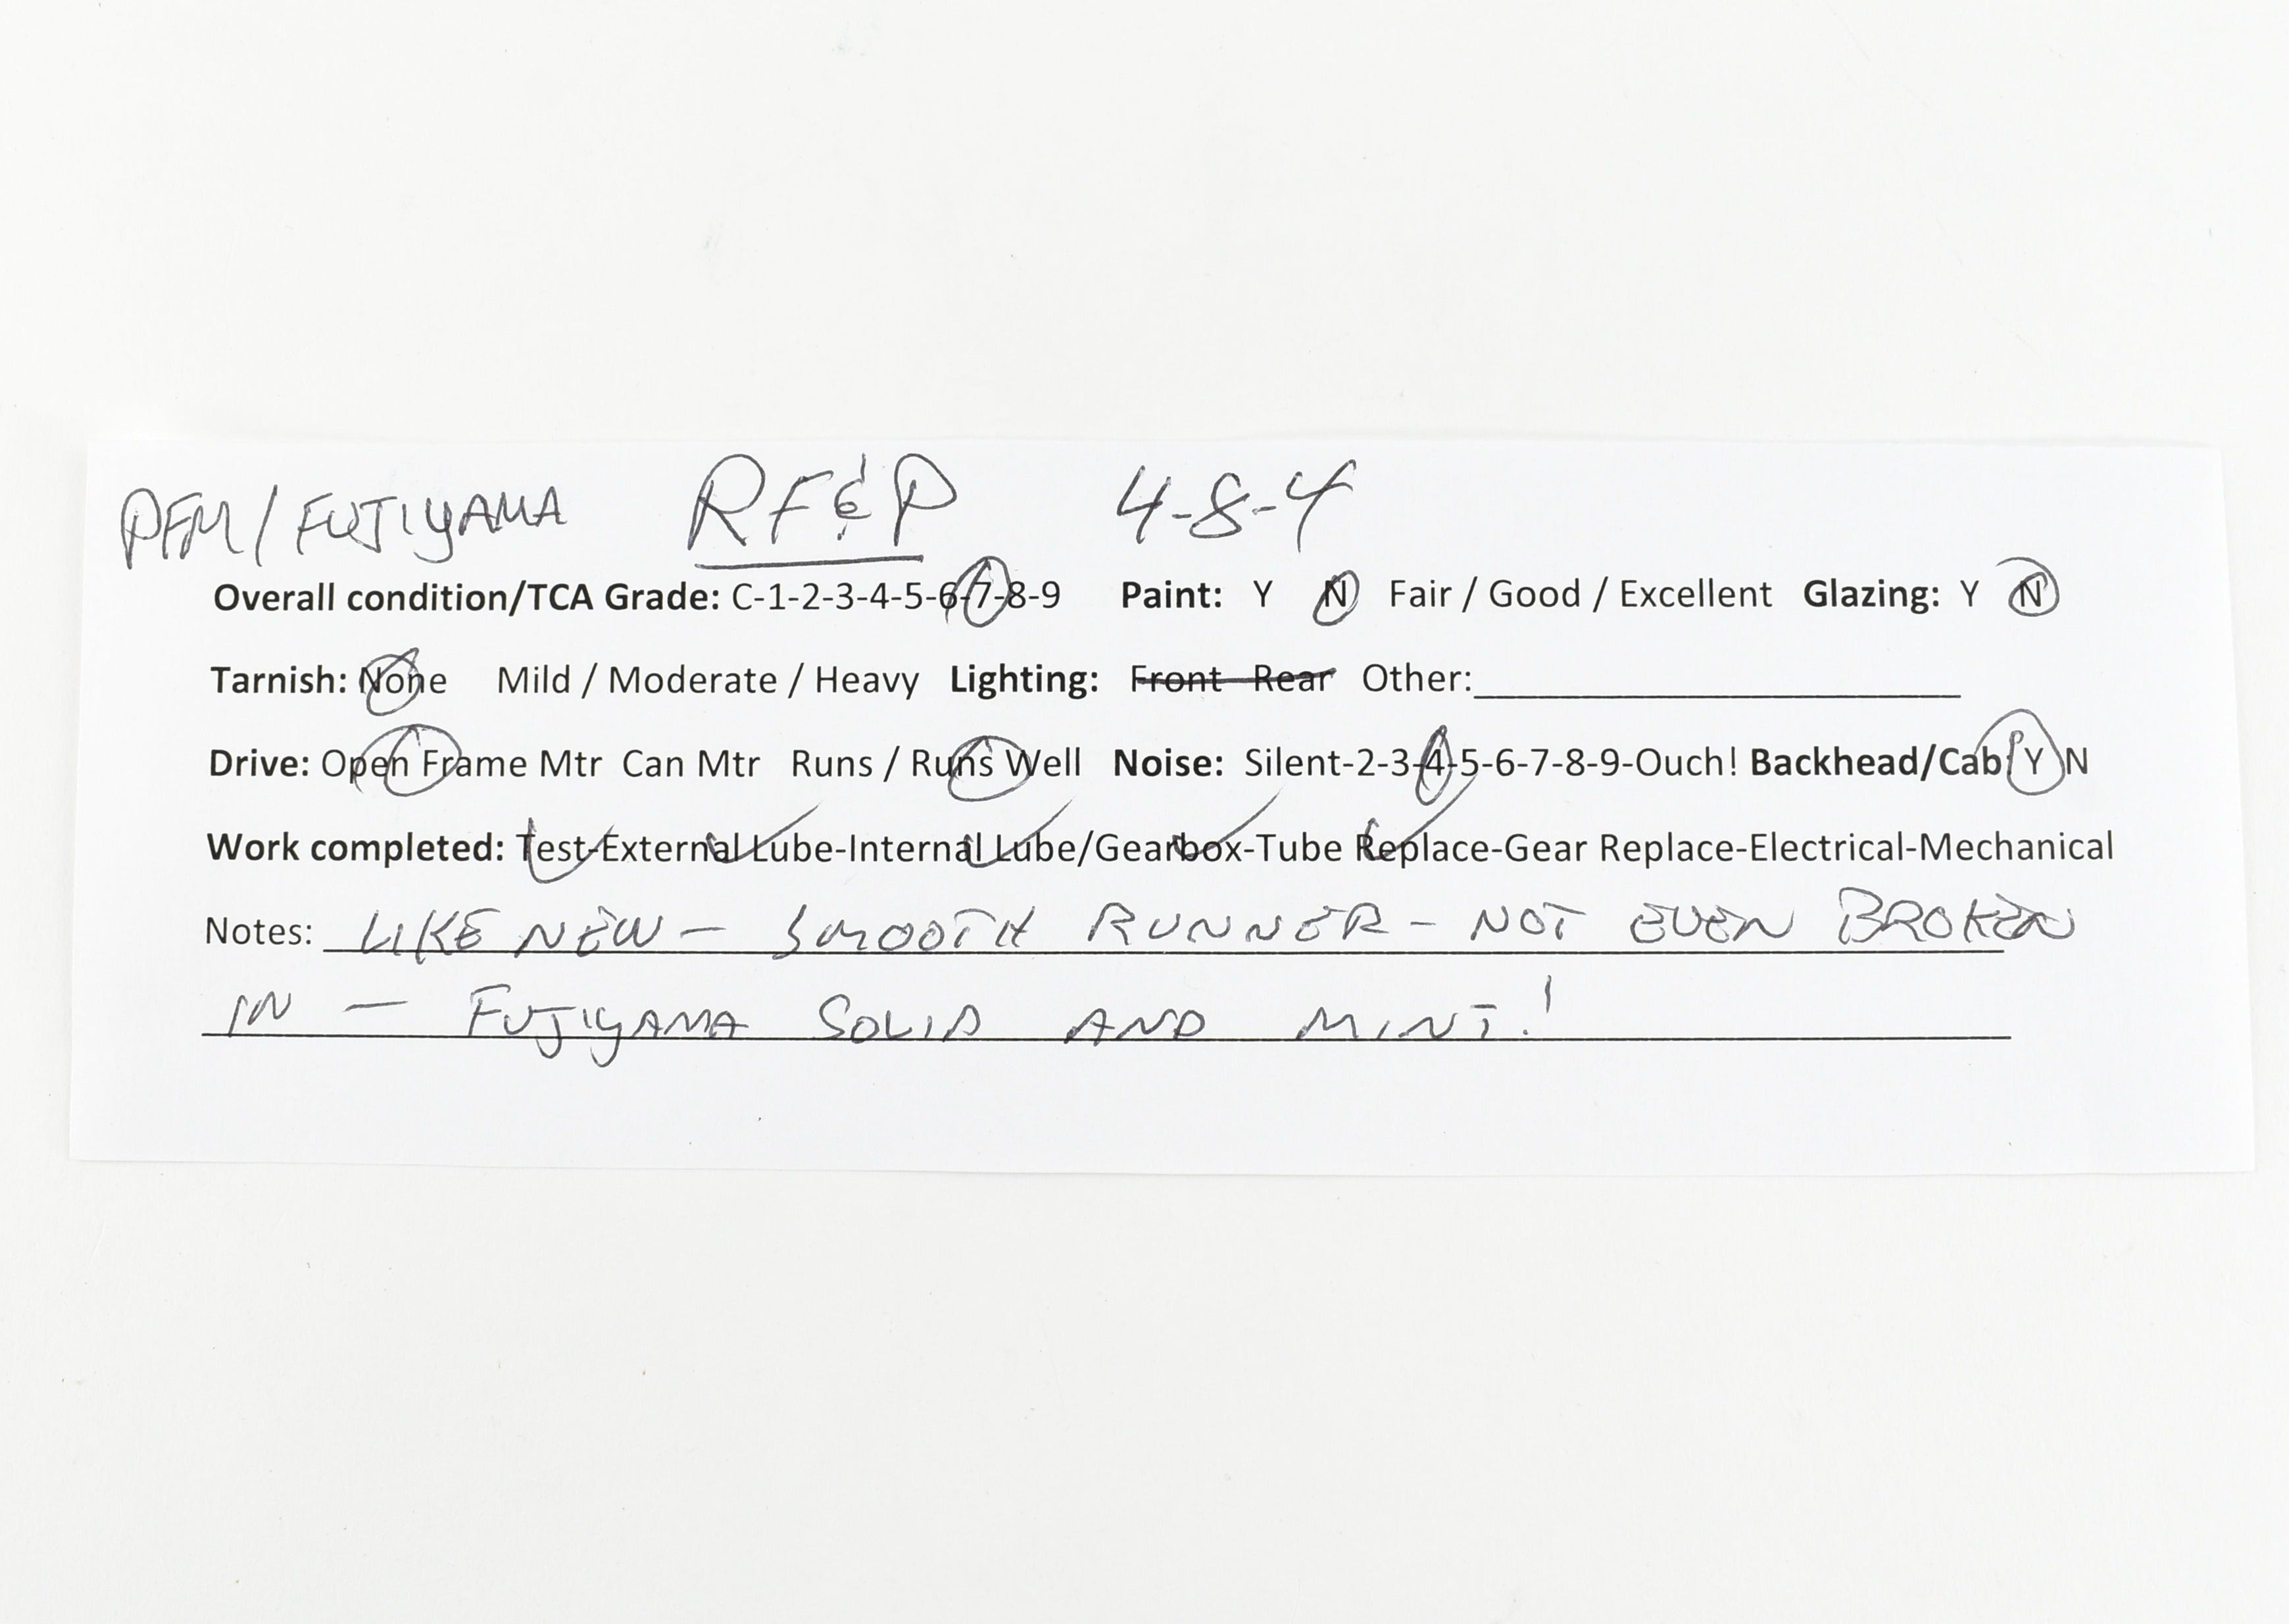 PFM/FUJIYAMA RF&P 4-8-4
Overall condition/TCA Grade: C-1-2-3-4-5-6-7-8-9 Paint: Y N Fair / Good / Excellent Glazing: Y N
Tarnish: None Mild / Moderate / Heavy Lighting: Front Rear Other:
Drive: Open Frame Mtr Can Mtr Runs / Runs Well Noise: Silent-2-3-4-5-6-7-8-9-Ouch! Backhead/Cab: Y N
Work completed: Test-External Lube-Internal Lube/Gearbox-Tube Replace-Gear Replace-Electrical-Mechanical
Notes: LIKE NEW - SMOOTH RUNNER - NOT EVEN BROKEN
IN - FUJIYAMA SOLID AND MINT!